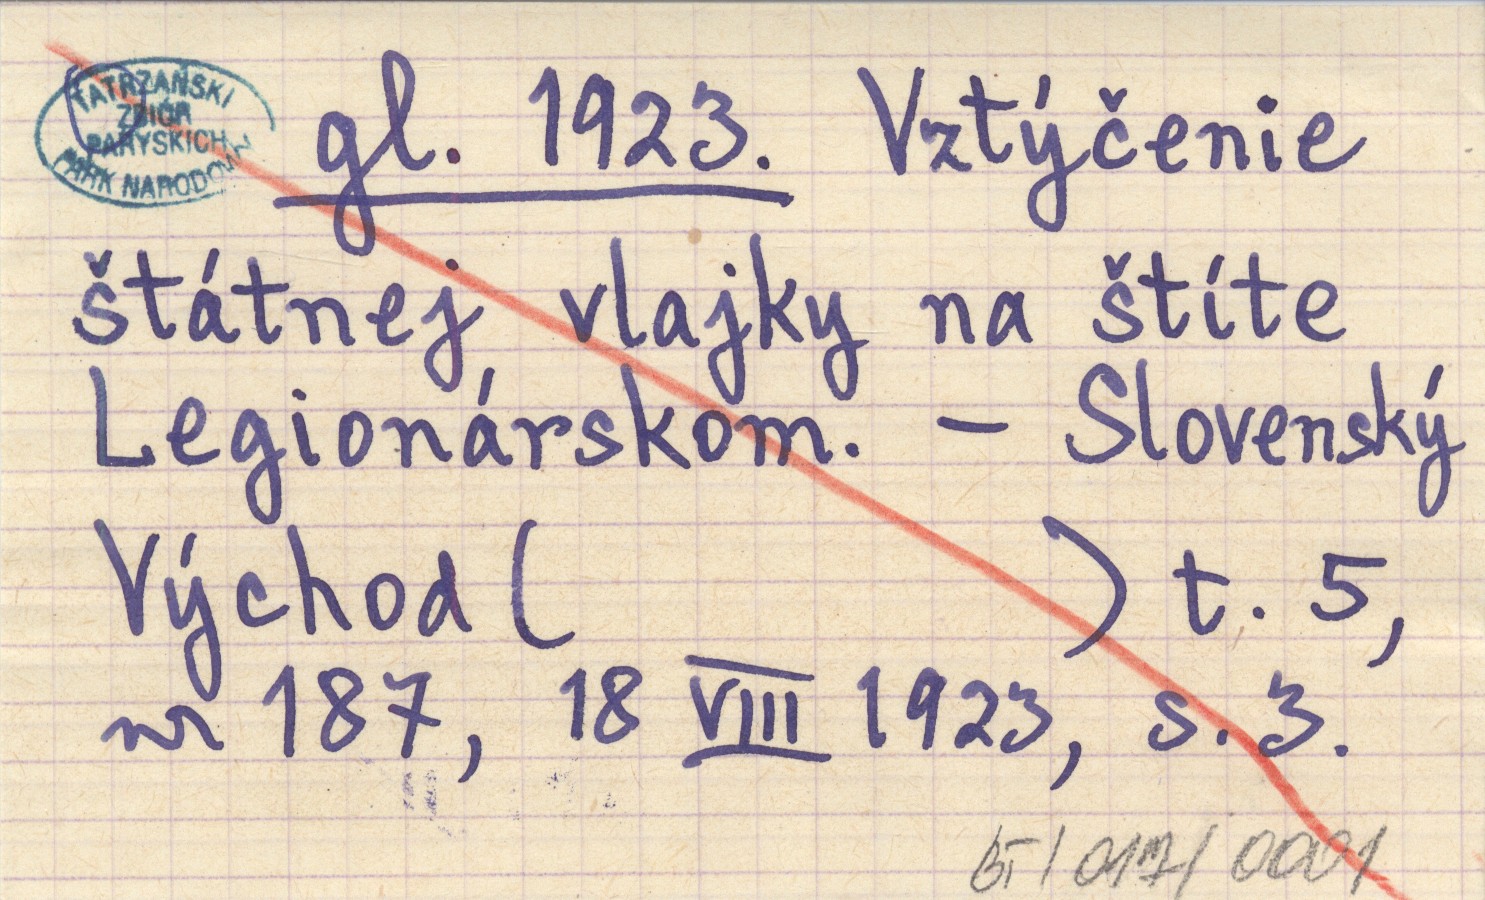 TATRZAŃSKI
ZBIÓR
PARYSKICH
PARK NARODOWY
gl. 1923. Vztýčenie
štátnej vlajky na štíte
Legionárskom. – Slovenský
Východ ( ) t. 5,
nr 187, 18 VIII 1923, s. 3.
BT/017/0001